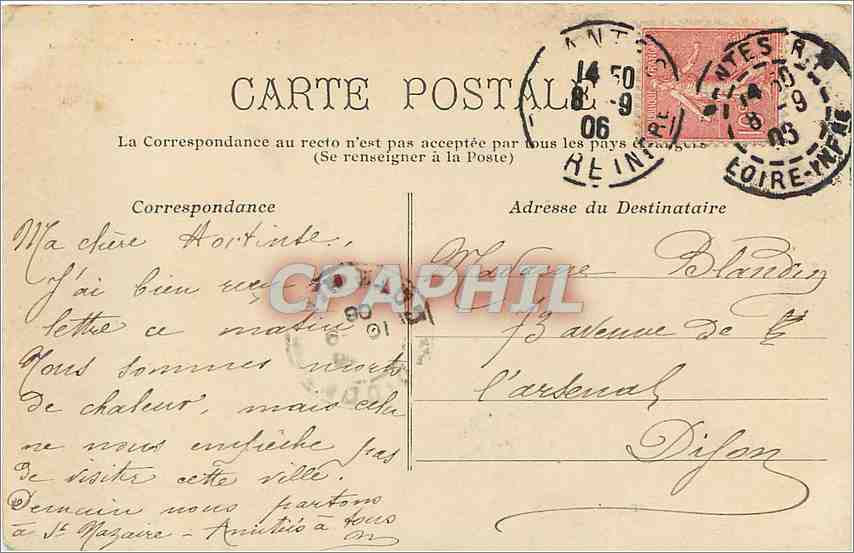 CARTE POSTALE
La Correspondance au recto n'est pas acceptée par tous les pays étrangers
(Se renseigner à la Poste)
14 50
8 - 9
06
NTES R.P.
8 - 9
LOIRE-INFRE
Correspondance
Ma chère Hortense,
J'ai bien reçu ta
lettre ce matin
Nous sommes morts
de chaleur, mais cela
ne nous empêche pas
de visiter cette ville.
Demain nous partons
à St Nazaire - Amitiés à tous
Adresse du Destinataire
Madame Blandin
73 avenue de
l'arsenal
Dijon
CPAPHIL